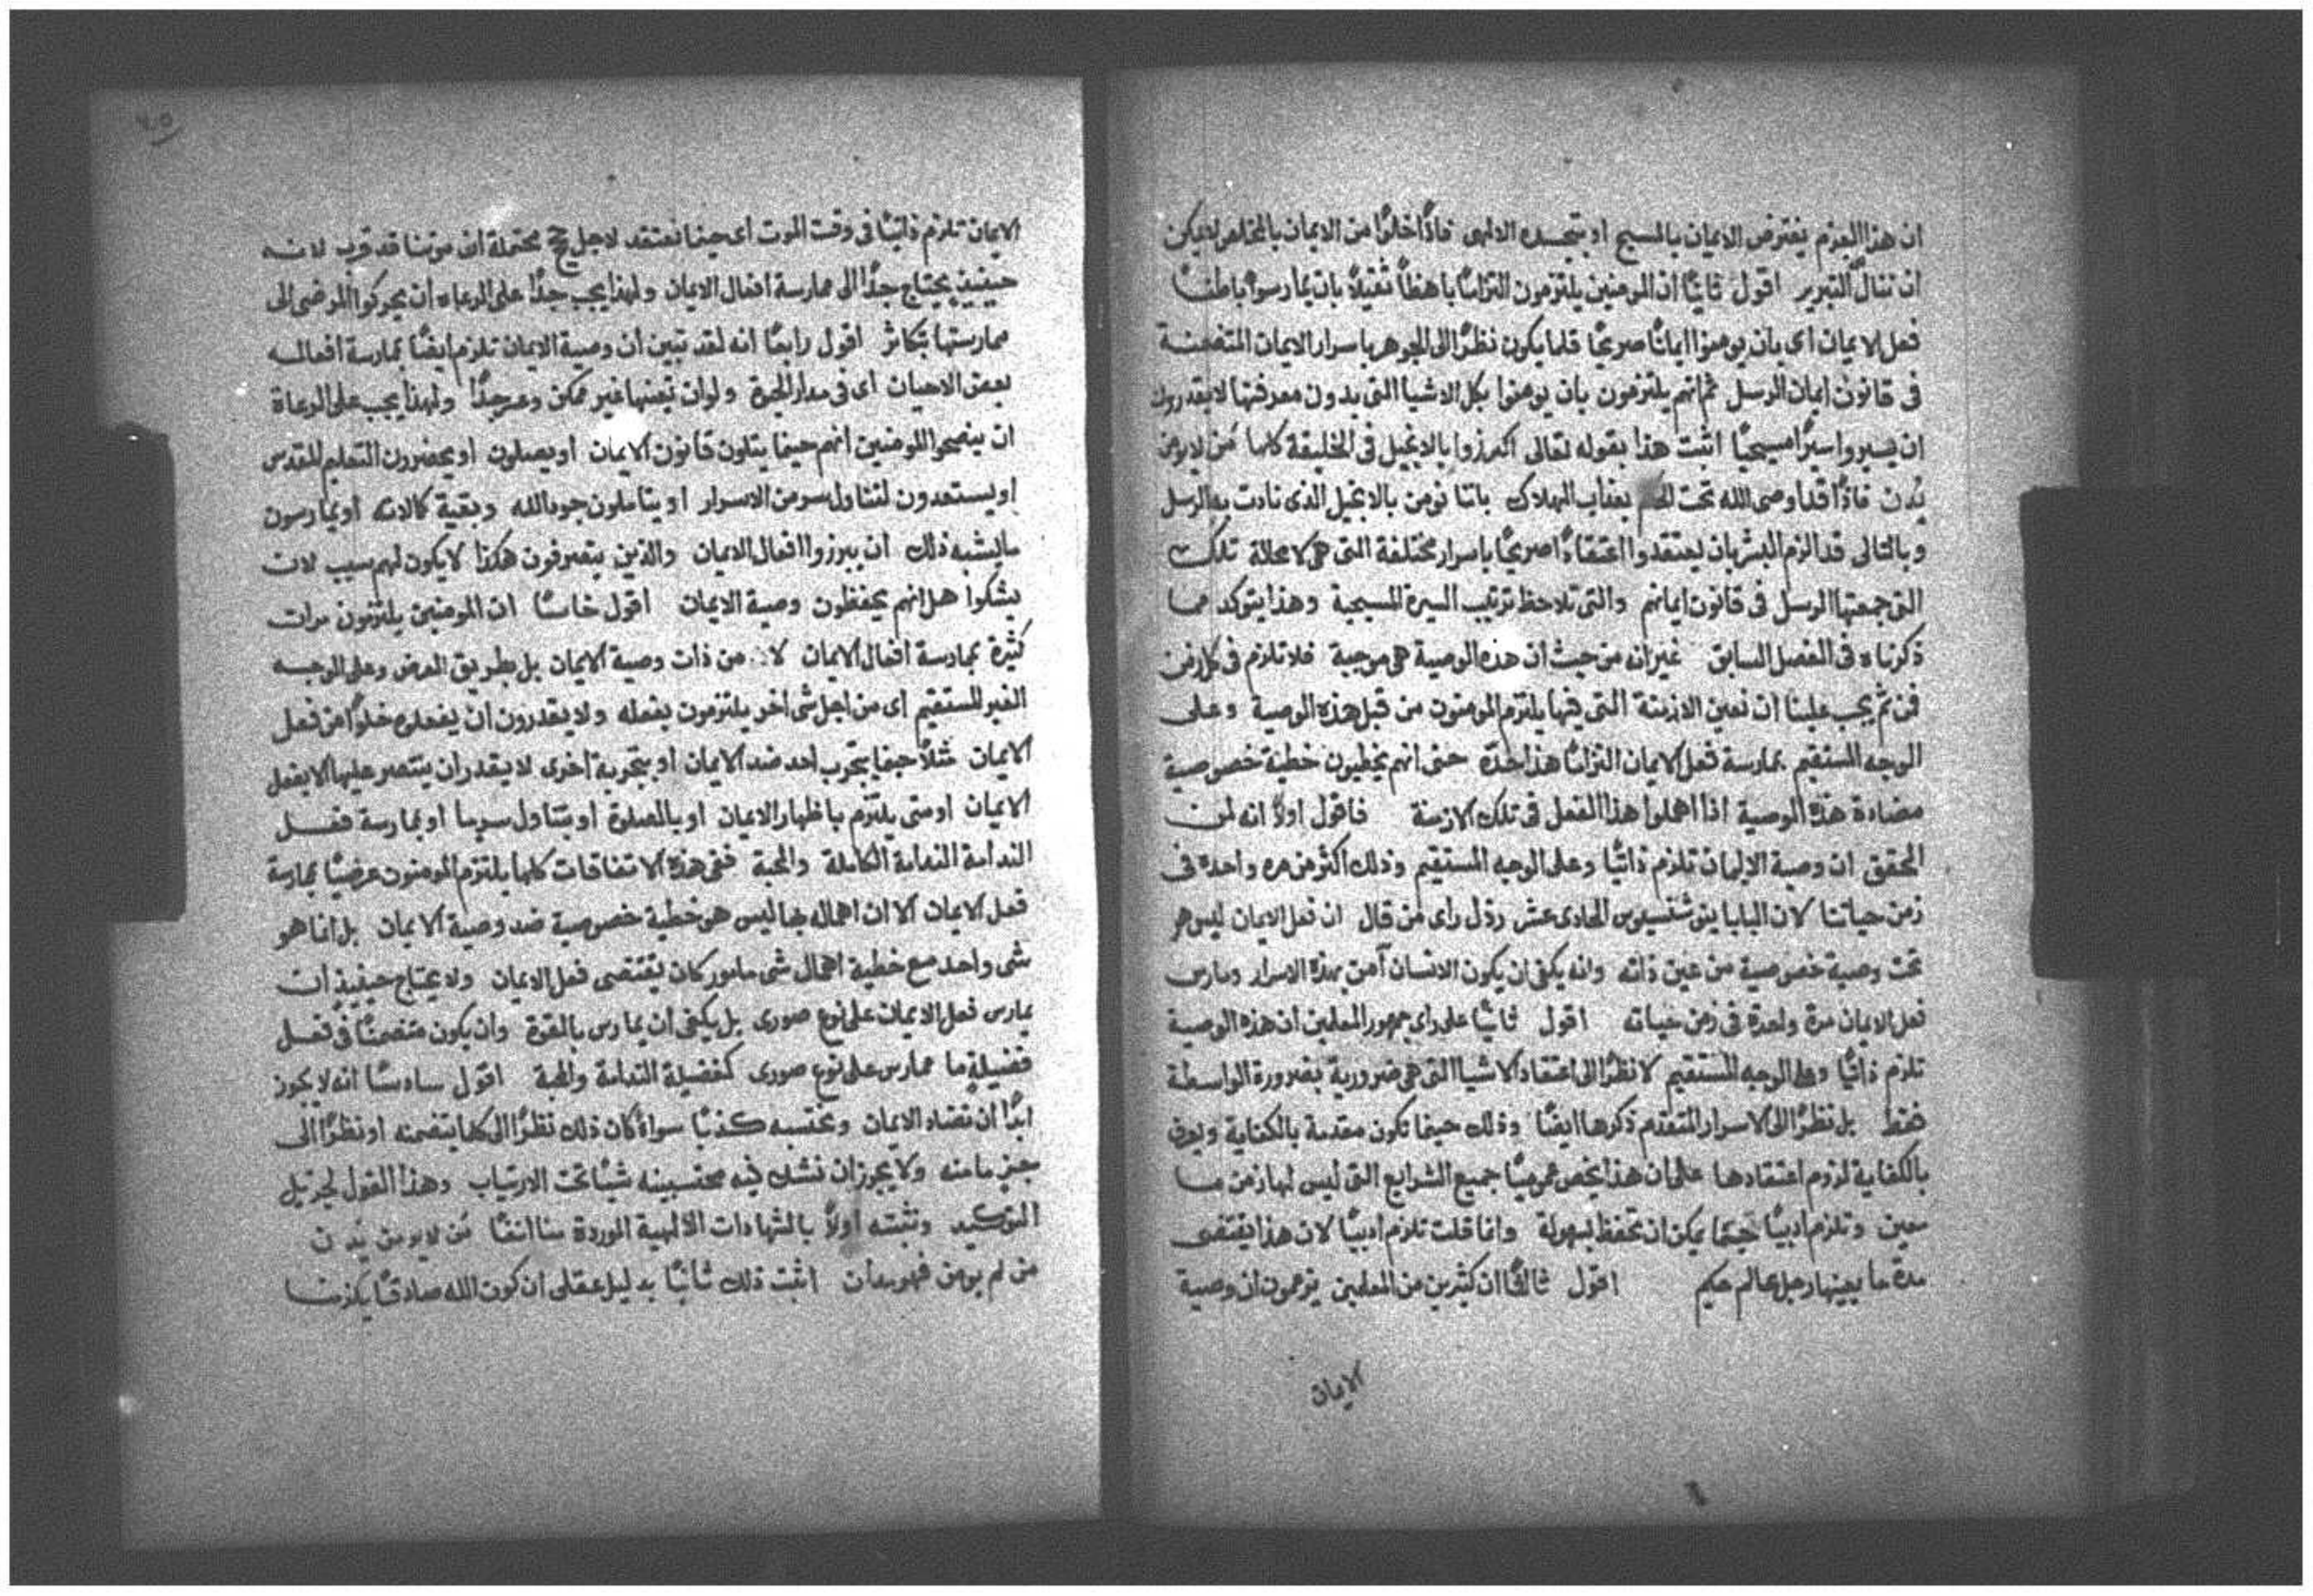 ان هذا العزم يفترض الايمان بالمسيح او بتجسده الالهى فاذًا خلوًا من الايمان بالمخلص لا يمكن
ان ننال التبرير اقول ثانيًا ان المومنين يلتزمون التزامًا باهظًا ثقيلاً بان يمارسوا باطنًا
فعل الايمان اى بان يومنوا ايمانًا صريحًا قلما يكون نظرًا الى الجوهر باسرار الايمان المتضمنة
فى قانون ايمان الرسل ثم انهم يلتزمون بان يومنوا بكل الاشيا التى بدون معرفتها لا يقدرون
ان يسيروا سيرًا مسيحيًا اثبت هذا بقوله تعالى اكرزوا بالانجيل فى الخليقة كلها فمن لا يومن
يُدن فاذًا قد اوصى الله تحت بعذاب الهلاك باننا نومن بالانجيل الذى نادت به الرسل
وبالتالى قد الزم البشر بان يعتقدوا اعتقادًا صريحًا باسرار مختلفة التى هى لا محالة تلك
التى جمعتها الرسل فى قانون ايمانهم والتى تلاحظ ترتيب السيرة المسيحية وهذا يتوكد مما
ذكرناه فى الفصل السابق غير انه من حيث ان هذه الوصية هى موجبة فلا تلزم فى كل زمن
فمن ثم يجب علينا ان نعين الازمنة التى فيها يلتزم المومنون من قبل هذه الوصية وعلى
الوجه المستقيم بمارسة فعل الايمان التزامًا هذا حده حتى انهم يخطيون خطية خصوصية
مضادة هذه الوصية اذا اهملوا هذا الفعل فى تلك الازمنة فاقول اولاً انه لمن
المحقق ان وصية الايمان تلزم ذاتيًا وعلى الوجه المستقيم وذلك اكثر من مره واحدة فى
زمن حياتنا لان البابا اينوشنسيوس الحادى عشر رذل راى من قال ان فعل الايمان ليس هو
تحت وصية خصوصية من عين ذاته وانه يكفى ان يكون الانسان آمن بهذه الاسرار ومارس
فعل الايمان مرة واحدة فى زمن حياته اقول ثانيًا على راى جمهور المعلمين ان هذه الوصية
تلزم ذاتيًا وعلى الوجه المستقيم لا نظرًا الى اعتقاد الاشيا التى هى ضرورية بضرورة الواسطة
فقط بل نظرًا الى الاسرار المتقدم ذكرها ايضًا وذلك حينما تكون مقدمة بالكفاية
بالكفاية لزوم اعتقادها على ان هذا يخص عموميًا جميع الشرايع التى ليس لها زمن مـا
معين وتلزم ادبيًا حينما يمكن ان تحفظ بسهولة وانما قلت تلزم ادبيًا لان هذا يقتضى
مدة ما يعينها رجل عالم حكيم اقول ثالثًا ان كثيرين من المعلمين يزعمون ان وصية
الايمان
٦٥
الايمان تلزم ذاتيًا فى وقت الموت اى حينما نعتقد لاجل حجج محتملة ان موتنا قد قرب لانه
حينيذٍ يحتاج جدًا الى ممارسة افعال الايمان ولهذا يجب جدًا على الرعاه ان يحركوا المرضى الى
ممارستها بتكاثر اقول رابعًا انه لقد تبين ان وصية الايمان تلزم ايضًا بمارسة افعاله
بعض الاحيان اى فى مدار الحيوة ولو ان تعينها غير ممكن وعسر جدًا ولهذا يجب على الرعاة
ان ينصحوا المومنين انهم حينما يتلون قانون الايمان او يصلون او يحضرون التعليم المقدس
او يستعدون لتناول سر من الاسرار او يتاملون جودالله وبقية كمالاته او يمارسون
ما يشبه ذلك ان يبرزوا افعال الايمان والذين يتصرفون هكذا لا يكون لهم سبب لان
يشكوا هل انهم يحفظون وصية الايمان اقول خامسًا ان المومنين يلتزمون مرات
كثيرة بمارسة افعال الايمان لا من ذات وصية الايمان بل بطريق العرض وعلى الوجـه
الغير المستقيم اى من اجل شى اخر يلتزمون بفعله ولا يقدرون ان يفعلوه خلوًا من فعل
الايمان مثلاً حينما يتجرب احد ضد الايمان او بتجربة اخرى لا يقدر ان ينتصر عليها الا بفعل
الايمان او متى يلتزم باظهار الايمان او بالصلوة او بتناول سر ما او بمارسة فعـل
الندامة الندامة الكاملة والمحبة ففى هذه الاتفاقات كلها يلتزم المومنون عرضيًا بمارسة
فعل الايمان الا ان اهماله بها ليس هو خطية خصوصية ضد وصية الايمان بل انما هو
شى واحد مع خطية اهمال شى مامور كان يقتضى فعل الايمان ولا يحتاج حينيذٍ ان
يمارس فعل الايمان على نوع صورى بل يكفى ان يمارس بالقوة وان يكون متضمنًا فى فعـل
فضيلة ما ممارس على نوع صورى كفضيلة الندامة والمحبة اقول سادسًا انه لا يجوز
ابدًا ان نضاد الايمان ونحتسبه كذبًا سواءً كان ذلك نظرًا الى كلما يتضمنه او نظرًا الى
جزءٍ ما منه ولا يجوز ان نشك فيه محتسبينه شيًا تحت الارتياب وهذا القول لجزيل
التوكيد ونثبته اولاً بالشهادات الالهية الموردة منا انفًا مَن لا يومن يُدن
من لم يومن فهو مدان اثبت ذلك ثانيًا بدليل عقلى ان كون الله صادقًا يلزمنا